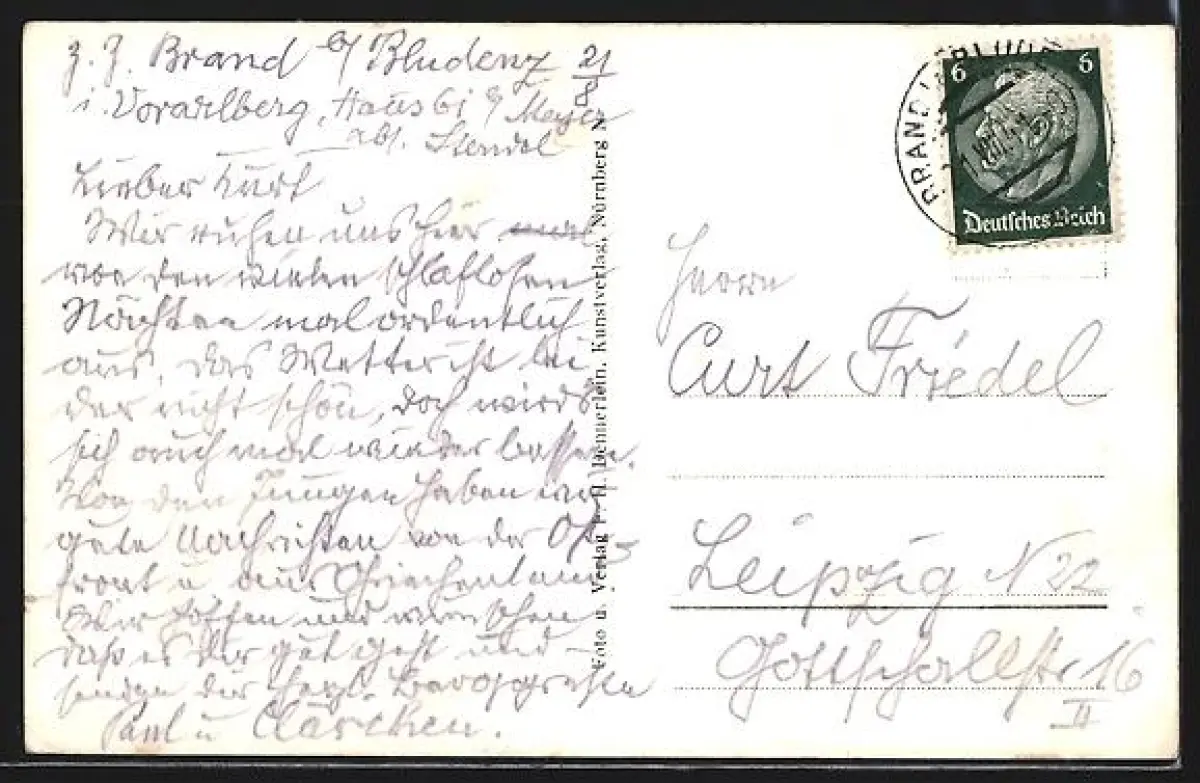 z. Z. Brand b/ Bludenz 21/8
i. Vorarlberg, Haus bei Meyer
abs. Stendel
Lieber Kurt
Wir ruhen uns hier mal
von den vielen schlaflosen
Nächten mal ordentlich
aus. Das Wetter ist lei
der nicht schön, doch wirds
sich auch mal wieder bessern.
Von den Jungen haben wir
gute Nachrichten von der Ost-
front u aus Griechenland.
Wir hoffen und wünschen
daß es dir gut geht und
senden dir herzl. Berggrüße
Paul u Clärchen.
Foto u. Verlag Dennerlein, Kunstverlag, Nürnberg
BRAND
6 6
Deutsches Reich
Herrn
Curt Friedel
Leipzig N 22
Gottschallstr 16
II